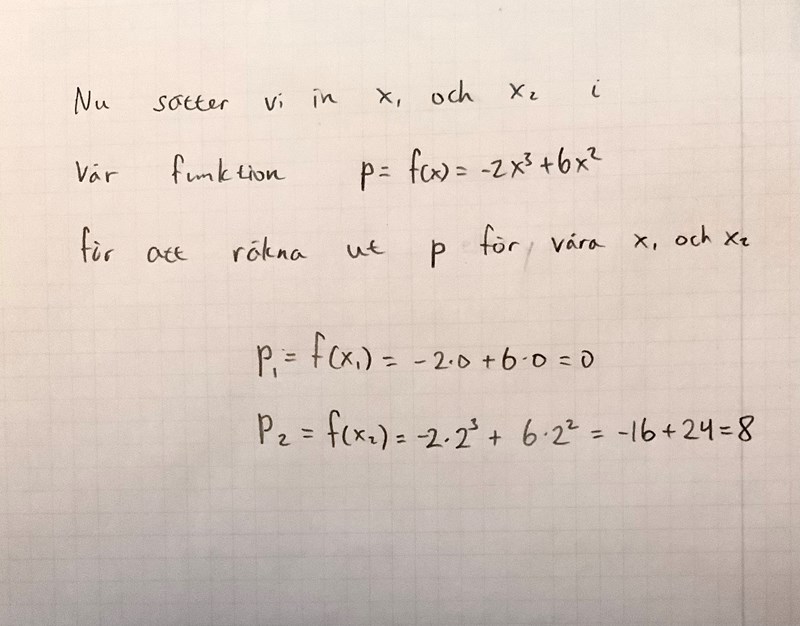 Nu sätter vi in x₁ och x₂ i
vår funktion p = f(x) = -2x³ + 6x²
för att räkna ut p för våra x₁ och x₂
p₁ = f(x₁) = -2·0 + 6·0 = 0
p₂ = f(x₂) = -2·2³ + 6·2² = -16 + 24 = 8